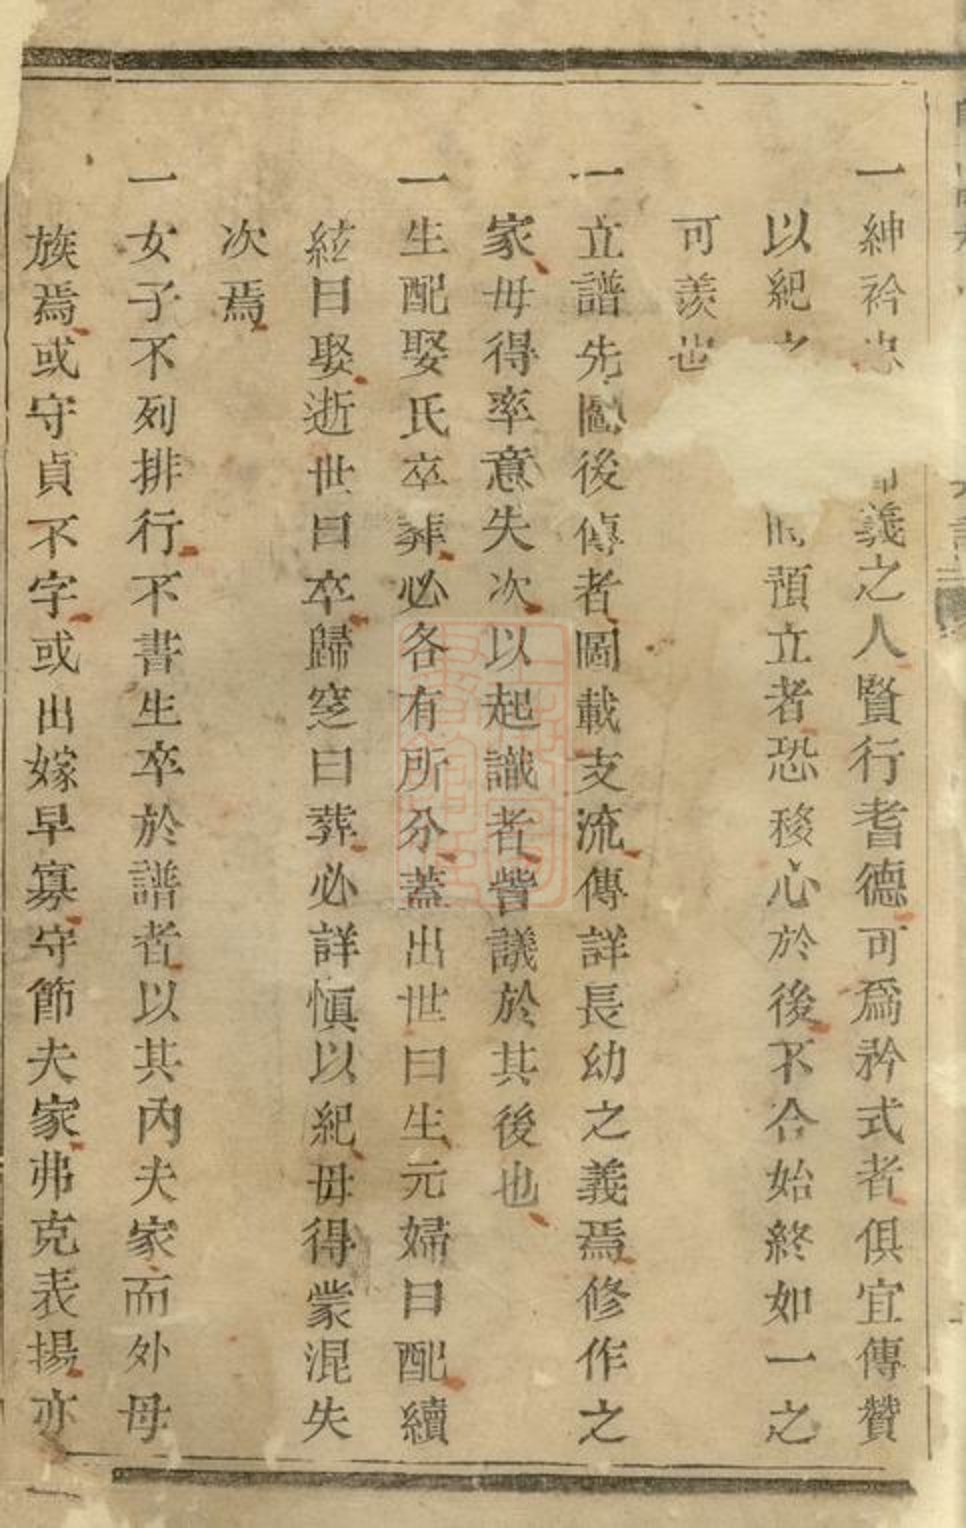 一紳衿忠義之人賢行耆德可爲矜式者俱宜傳贊
以紀之預立者恐移心於後不合始終如一之
可羨也
一立譜先圖後傳者圖載支流傳詳長幼之義焉修作之
家毋得率意失次以起識者訾議於其後也
一生配娶氏卒葬必各有所分蓋出世曰生元婦曰配續
絃曰娶逝世曰卒歸窆曰葬必詳愼以紀毋得蒙混失
次焉
一女子不列排行不書生卒於譜者以其內夫家而外母
族焉或守貞不字或出嫁早寡守節夫家弗克表揚亦